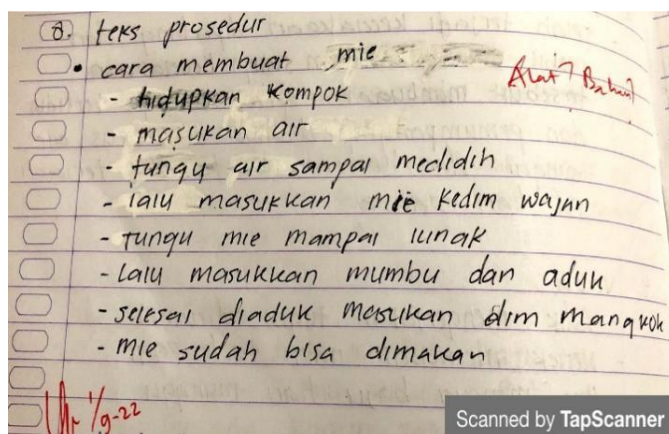 8. teks prosedur
• cara membuat mie
Alat? Bahan?
- hidupkan kompok
- masukan air
- tungu air sampai meclidih
- lalu masukkan mie kedlm wajan
- tungu mie mampai lunak
- lalu masukkan mumbu dan aduk
- selesai diaduk masukan dlm mangkok
- mie sudah bisa dimakan
1/9-22
Scanned by TapScanner